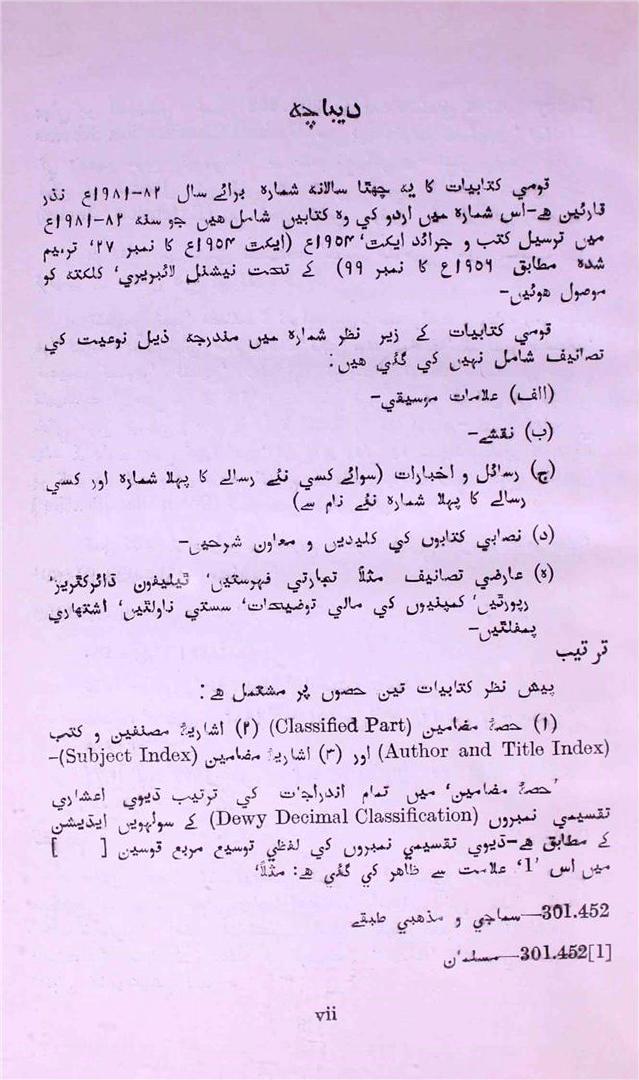 دیباچہ
قومي کتابیات کا یہ چھٹا سالانہ شمارہ برائے سال ۸۲-۱۹۸۱ع نذر
قارئین ھے-اس شمارہ میں اردو کي وہ کتابیں شامل ھیں جو سنہ ۸۲-۱۹۸۱ع
میں ترسیل کتب و جرائد ایکٹ، ۱۹۵۴ع (ایکٹ ۱۹۵۴ع کا نمبر ۲۷، ترمیم
شدہ مطابق ۱۹۵۶ع کا نمبر ۹۹) کے تحت نیشنل لائبریري، کلکتہ کو
موصول ھوئیں-
قومي کتابیات کے زیر نظر شمارہ میں مندرجہ ذیل نوعیت کي
تصانیف شامل نہیں کي گئي ھیں:
(الف) علامات موسیقي-
(ب) نقشے-
(ج) رسائل و اخبارات (سوائے کسي نئے رسالے کا پہلا شمارہ اور کسي
رسالے کا پہلا شمارہ نئے نام سے)
(د) نصابي کتابوں کي کلیدیں و معاون شرحیں-
(ہ) عارضي تصانیف مثلاً تجارتي فہرستیں، ٹیلیفون ڈائرکٹریز،
رپورٹیں، کمپنیوں کي مالي توضیحات، سستي ناولیں، اشتہاري
پمفلٹیں-
ترتیب
پیش نظر کتابیات تین حصوں پر مشتمل ھے:
(۱) حصۂ مضامین (Classified Part) (۲) اشاریۂ مصنفین و کتب
(Author and Title Index) اور (۳) اشاریۂ مضامین (Subject Index)-
’حصۂ مضامین‘ میں تمام اندراجات کي ترتیب ڈیوي اعشاري
تقسیمي نمبروں (Dewy Decimal Classification) کے سولہویں ایڈیشن
کے مطابق ھے-ڈیوي تقسیمي نمبروں کي لفظي توسیع مربع قوسین [ ]
میں اس ’1‘ علامت سے ظاھر کي گئي ھے: مثلاً،
301.452—سماجي و مذھبي طبقے
301.452[1]—مسلمان
vii